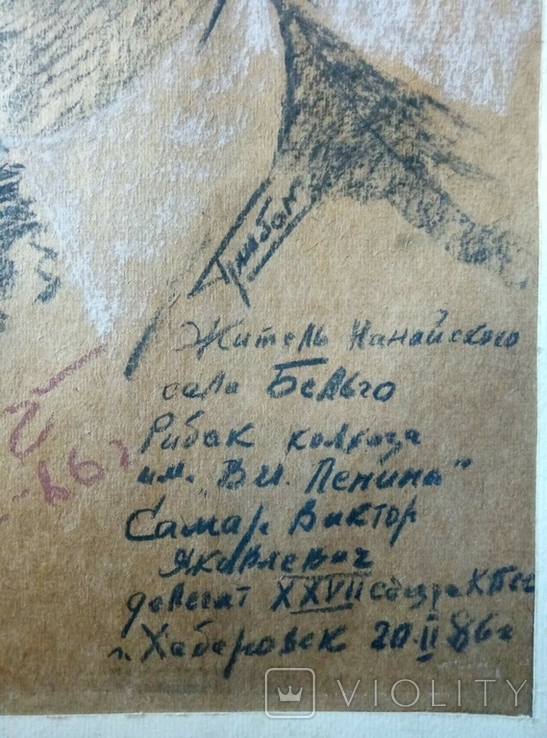 Житель Нанайского
села Бельго
Рибак колхоза
им. "В.И. Ленина"
Самар Виктор
Яковлевич
делегат XXVII съезда КПСС
г. Хабаровск 20.II 86г
VIOLITY